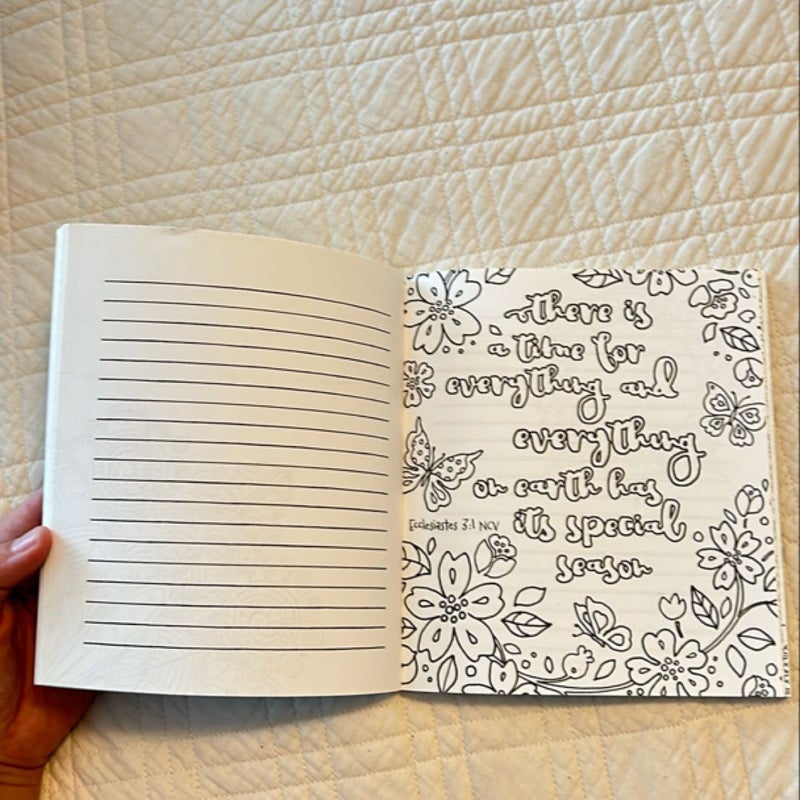 there is
a time for
everything and
everything
on earth has
its special
season
Ecclesiastes 3:1 NCV